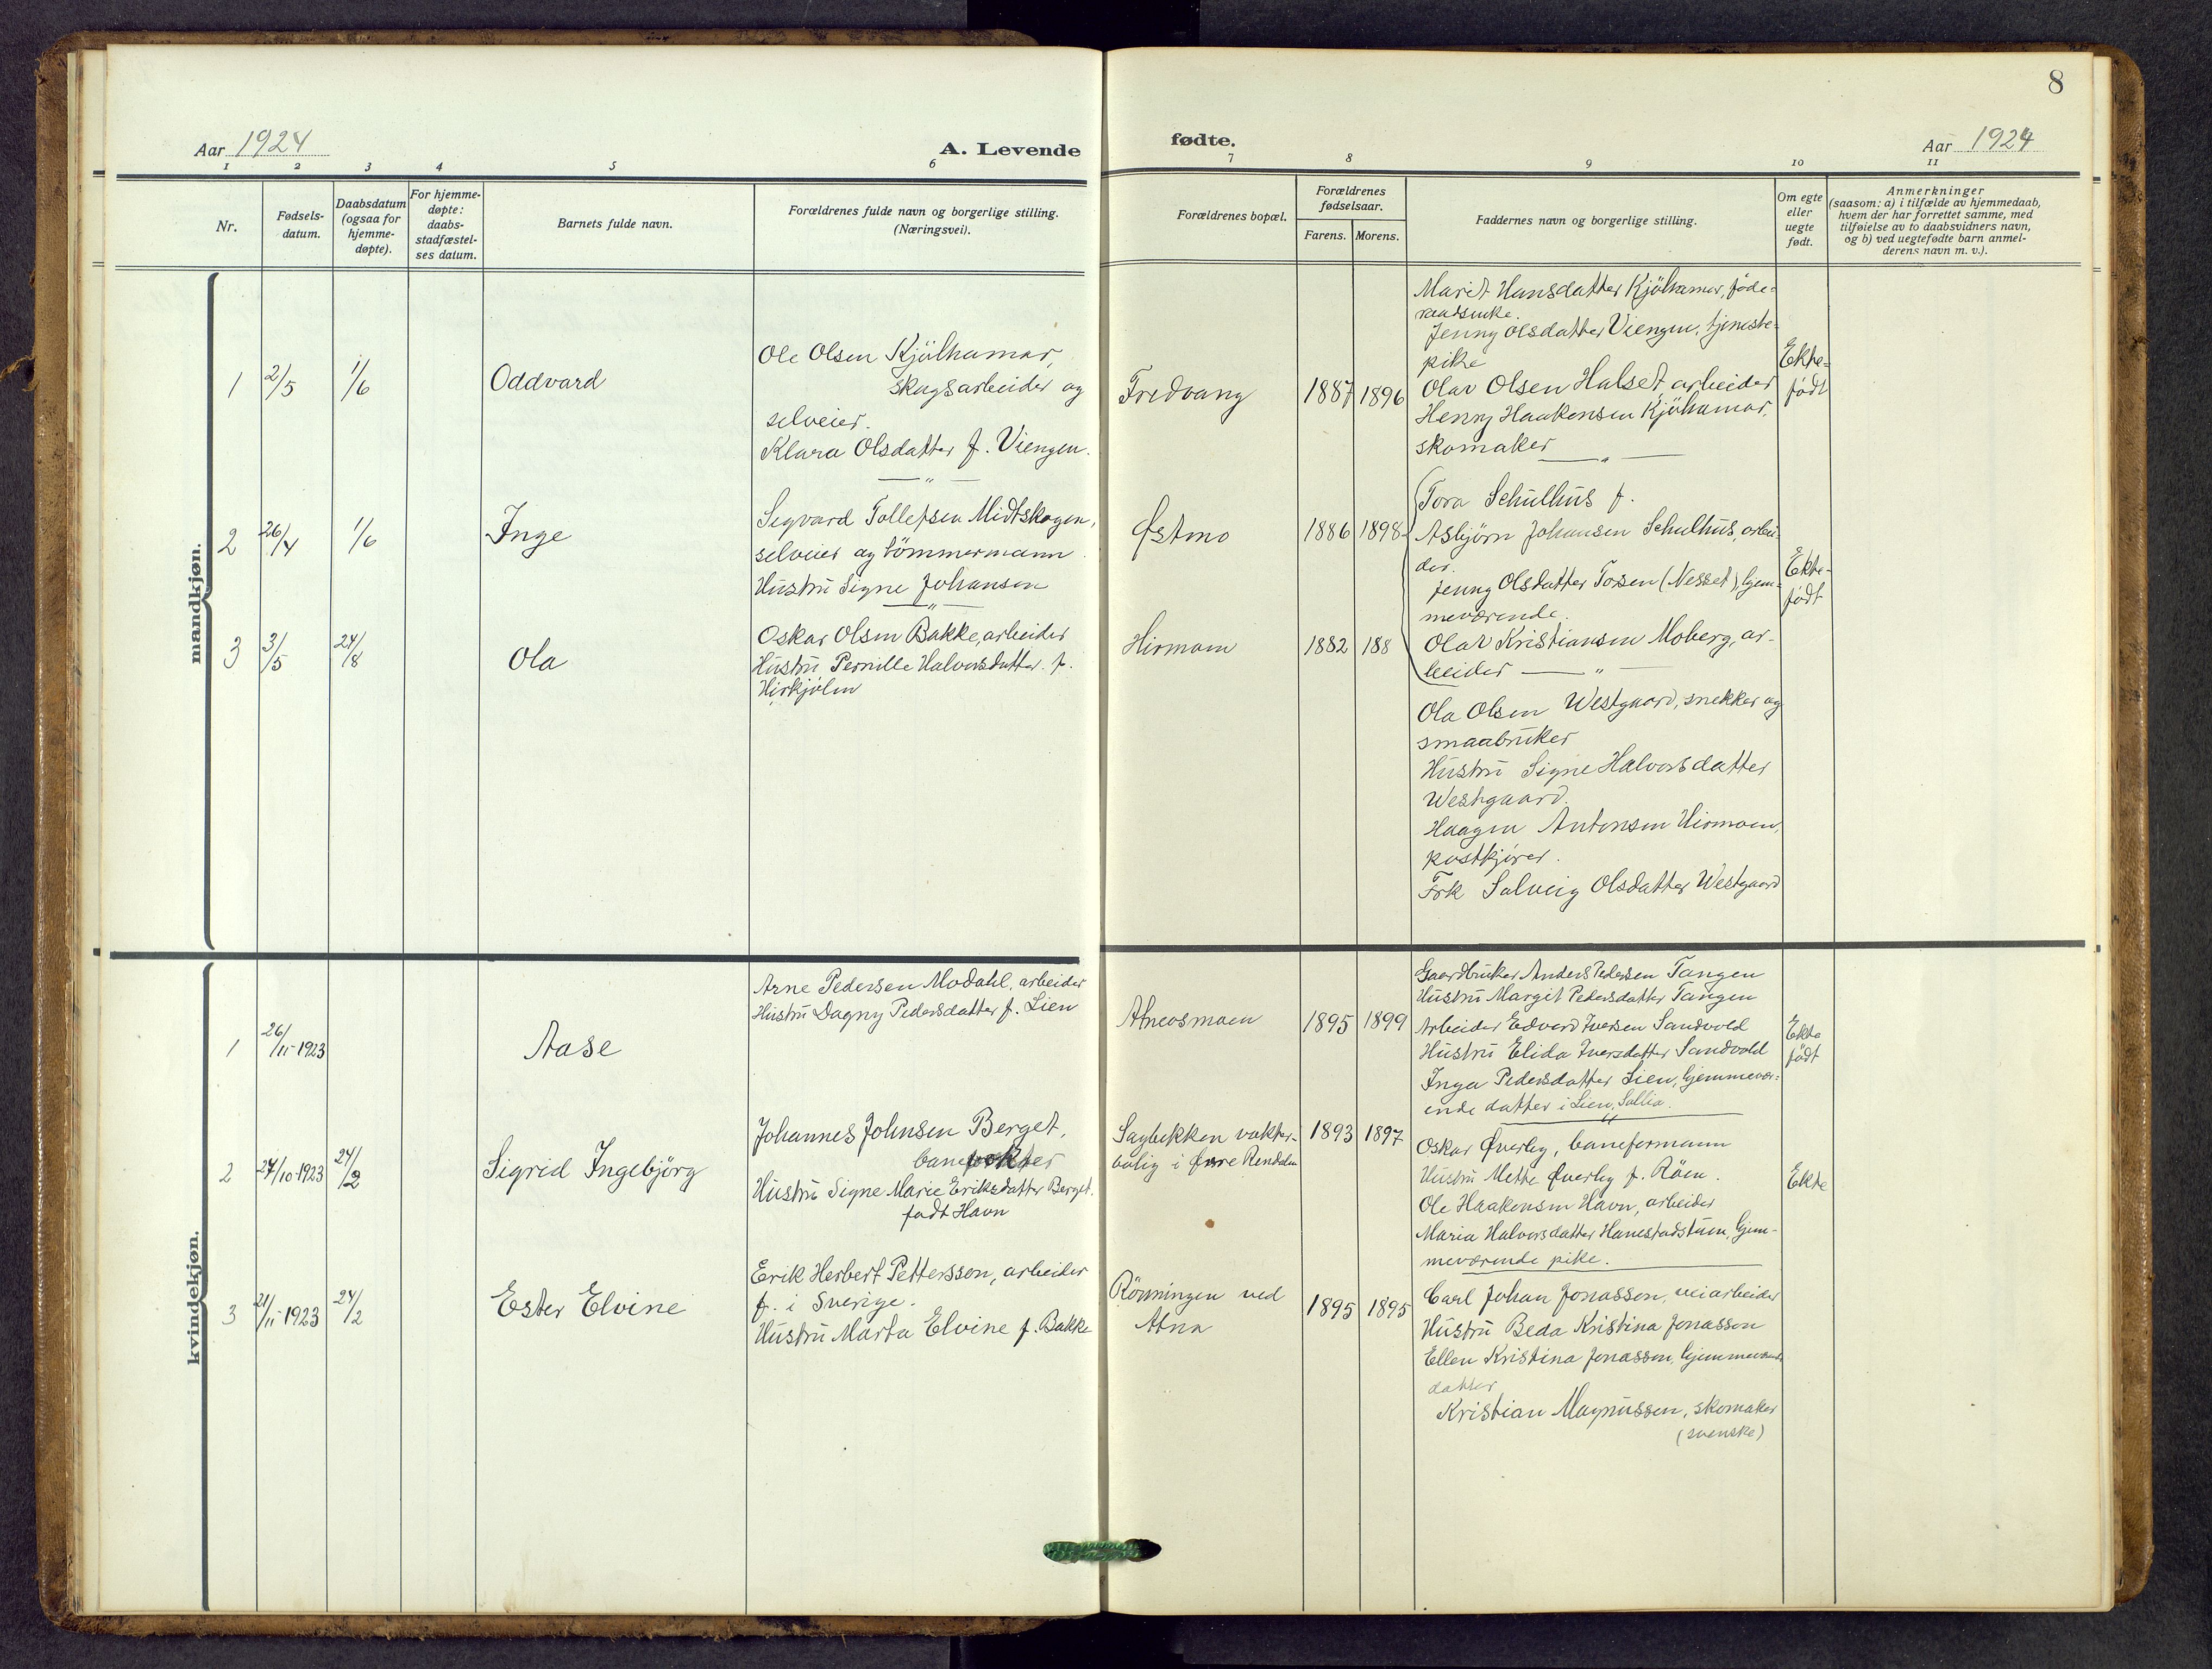 8
Aar 1924
A. Levende
fødte.
Aar 1924
1 2 3 4 5 6 7 8 9 10 11
Nr.
Fødsels-
datum.
Daabsdatum
(ogsaa for
hjemme-
døpte).
For hjemme-
døpte:
daabs-
stadfæstel-
ses datum.
Barnets fulde navn.
Forældrenes fulde navn og borgerlige stilling.
(Næringsvei).
Forældrenes bopæl.
Forældrenes
fødselsaar.
Farens. Morens.
Faddernes navn og borgerlige stilling.
Om egte
eller
uegte
født.
Anmerkninger
(saasom: a) i tilfælde av hjemmedaab,
hvem der har forrettet samme, med
tilføielse av to daabsvidners navn,
og b) ved uegtefødte barn anmel-
derens navn m. v.).
mandkjøn.
1 2/5 1/6 Oddvard
Ole Olsen Kjölhamar,
skogsarbeider og
selveier.
Klara Olsdatter f. Viengen.
— " —
Fredvang 1887 1896
Marit Hansdatter Kjölhamar, föde-
raadsenke.
Jenny Olsdatter Viengen, tjeneste-
pike
Olav Olsen Halset, arbeider
Henry Haakensen Kjölhamar,
skomaker
— " —
Ekte-
født
2 26/4 1/6 Inge
Sigvard Tollefsen Midtskogen,
selveier og tömmermann
Hustru Signe Johansen
— " —
Østmo 1886 1898
Tora Schulhus f.
Asbjørn Johansen Schulhus, arbei-
der.
Jenny Olsdatter Torsen (Nesset), hjem-
meværende.
Olav Kristiansen Moberg, ar-
beider — " —
Ekte-
født
3 3/5 24/8 Ola
Oskar Olsen Bakke, arbeider
Hustru Pernille Halvorsdatter f.
Hirkjølen
Hirmoen 1882 188
Ola Olsen Westgaard, snekker og
smaabruker
Hustru Signe Halvorsdatter
Westgaard.
Haagen Antonsen Hirmoen,
postkjører.
Frk Solveig Olsdatter Westgaard
kvindekjøn.
1 26/11-1923 Aase
Arne Pedersen Modahl, arbeider
Hustru Dagny Pedersdatter f. Lien
Atneosmoen 1895 1899
Gaardbruker Anders Pedersen Tangen
Hustru Margit Pedersdatter Tangen
Arbeider Edvard Iversen Sandvold
Hustru Elida Iversdatter Sandvold
Inga Pedersdatter Lien, hjemmevær-
ende datter i Lien, Sollia.
Ekte
født
2 27/10-1923 24/2 Sigrid Ingebjörg
Johannes Johnsen Berget,
banevokter
Hustru Signe Marie Eriksdatter Berget.
født Havn
Sagbekken vokter-
bolig i Øvre Rendalen
1893 1897
Oskar Øverby, baneformann
Hustru Methe Øverby f. Röen.
Ole Haakensen Havn, arbeider
Maria Halvorsdatter Hanestadstuen, hjem-
meværende pike.
Ekte
3 21/11-1923 24/2 Ester Elvine
Erik Herbert Pettersson, arbeider
f. i Sverige.
Hustru Marta Elvine f. Bakke
Rönningen ved
Atna
1895 1895
Carl Johan Jonasson, veiarbeider
Hustru Beda Kristina Jonasson
Ellen Kristina Jonasson, hjemmeværende
datter
Kristian Magnussen, skomaker
(svenske)